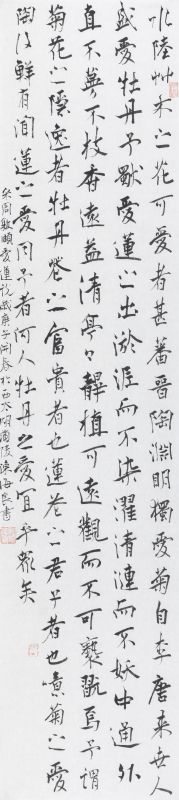 水陸艸木之花可愛者甚蕃晉陶淵明獨愛菊自李唐来世人
盛愛牡丹予獨愛蓮之出淤泥而不染濯清漣而不妖中通外
直不蔓不枝香遠益清亭々靜植可遠觀而不可褻翫焉予謂
菊花之隱逸者牡丹花之富貴者也蓮花之君子者也噫菊之愛
陶後鮮有聞蓮之愛同予者何人牡丹之愛宜乎衆矣
宋周敦頤愛蓮說歲庚子開春於西蘭陵海書